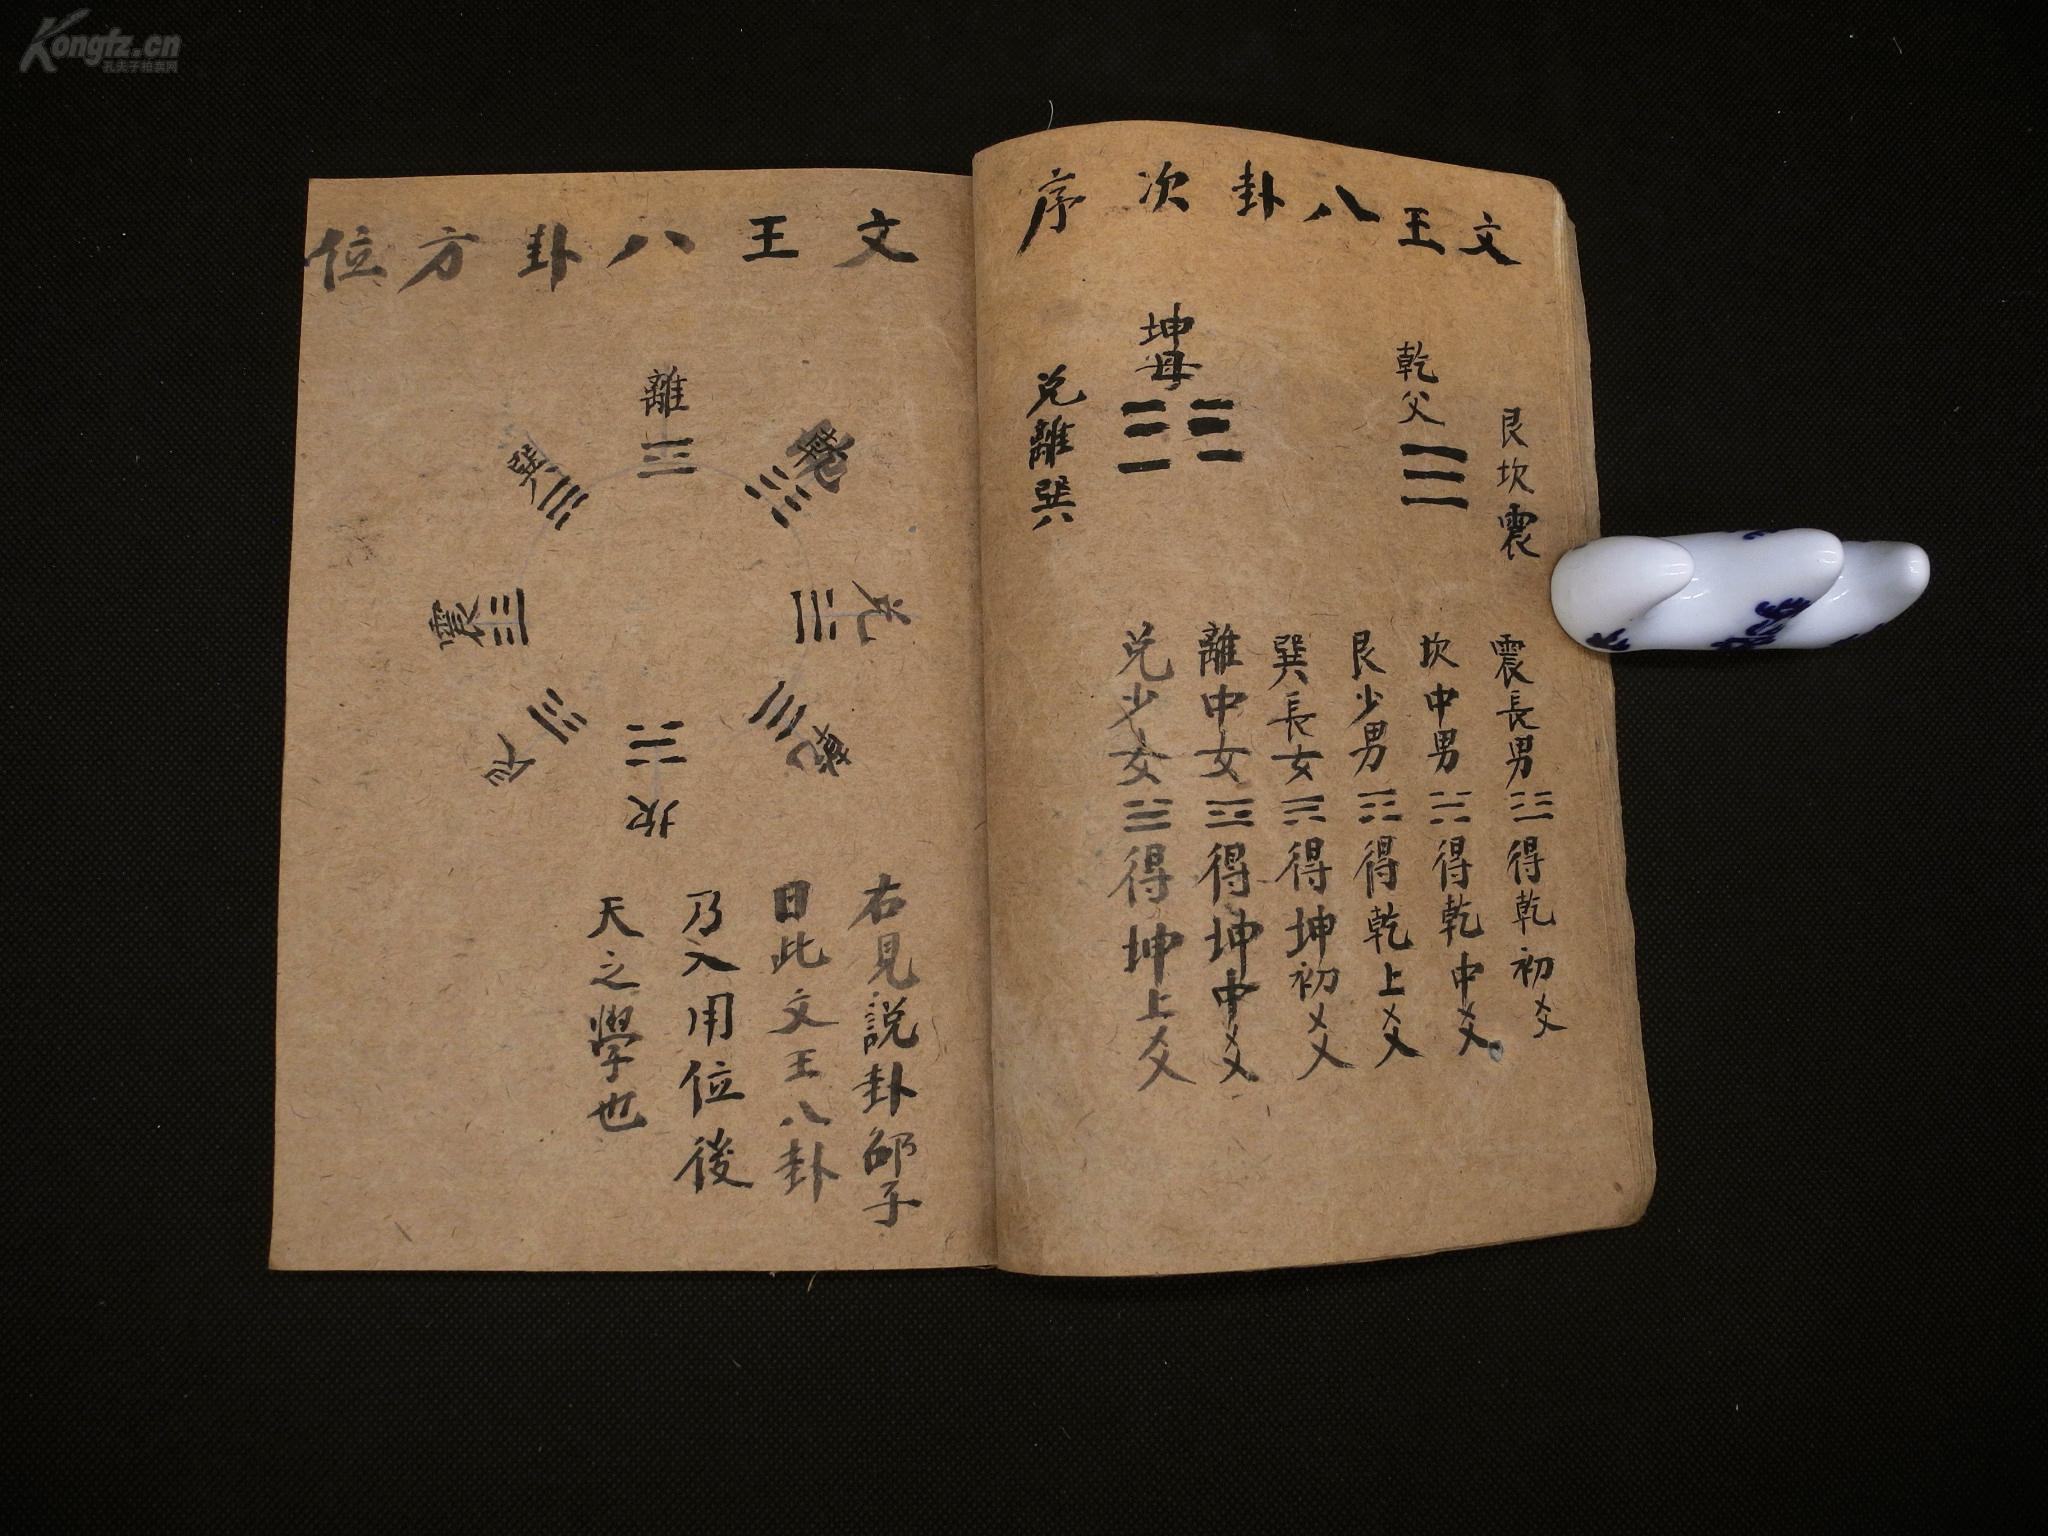 文王八卦次序
艮坎震
乾父
坤母
兌離巽
震長男☳得乾初爻
坎中男☵得乾中爻
艮少男☶得乾上爻
巽長女☴得坤初爻
離中女☲得坤中爻
兌少女☱得坤上爻
文王八卦方位
離
巽
兌
震
乾
坎
右見說卦邵子
曰此文王八卦
乃入用位後
天之學也
Kongfz.cn
孔夫子拍卖网